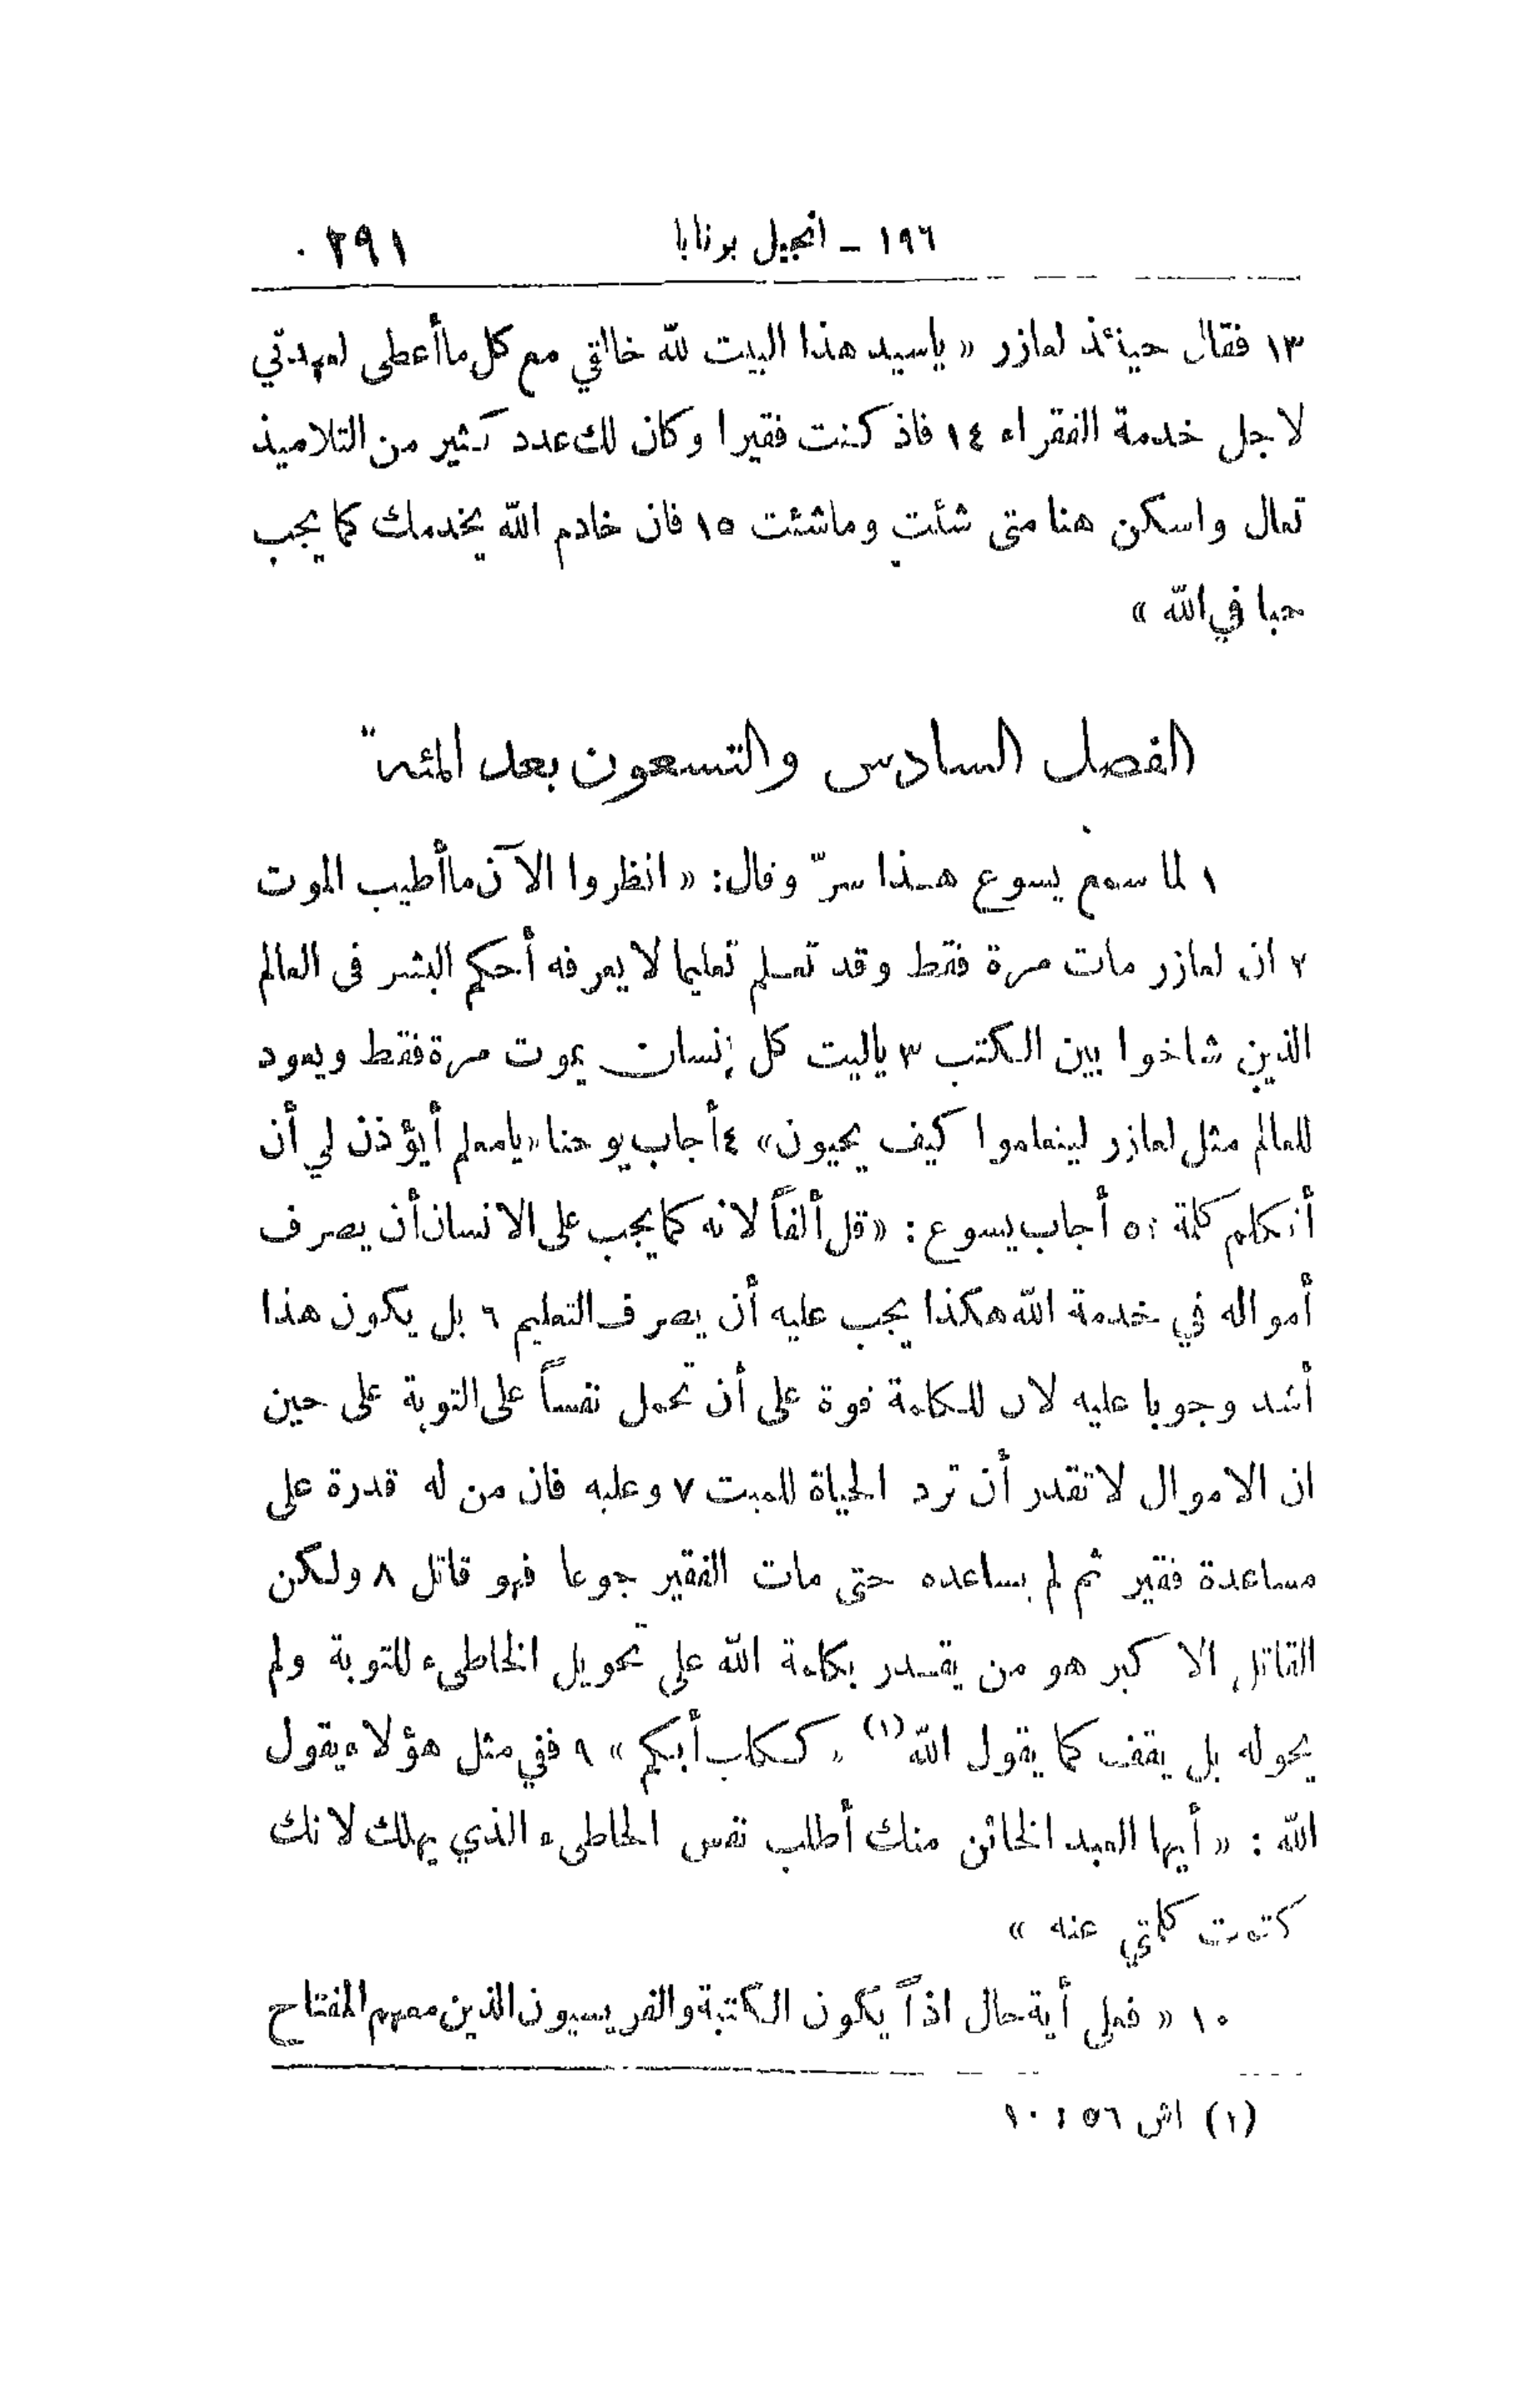 ١٩٦ – انجيل برنابا ٢٩١
١٣ فقال حينئذ لعازر « ياسيد هذا البيت لله خالقي مع كل ماأعطى لعهدتي
لاجل خدمة الفقراء ١٤ فاذ كنت فقيرا وكان لك عدد كثير من التلاميذ
تعال واسكن هنا متى شئت وماشئت ١٥ فان خادم الله يخدمك كما يجب
حبا في الله »
الفصل السادس والتسعون بعد المئة
١ لما سمع يسوع هذا سرّ وقال: « انظروا الآن ماأطيب الموت
٢ ان لعازر مات مرة فقط وقد تعلم تعليما لا يعرفه أحكم البشر فى العالم
الذين شاخوا بين الكتب ٣ ياليت كل إنسان يموت مرة فقط ويعود
للعالم مثل لعازر ليتعلموا كيف يحيون» ٤ أجاب يوحنا «يامعلم أيؤذن لي أن
أتكلم كلمة ; ٥ أجاب يسوع : « قل ألفاً لانه كما يجب على الانسان أن يصرف
أمواله في خدمة الله هكذا يجب عليه أن يصرف التعليم ٦ بل يكون هذا
أشد وجوبا عليه لان للكلمة قوة على أن تحمل نفساً على التوبة على حين
ان الاموال لا تقدر أن ترد الحياة للميت ٧ وعليه فان من له قدرة على
مساعدة فقير ثم لم يساعده حتى مات الفقير جوعا فهو قاتل ٨ ولكن
القاتل الا كبر هو من يقدر بكلمة الله على تحويل الخاطىء للتوبة ولم
يحوله بل يقف كما يقول الله (١) « ككلب أبكم » ٩ ففي مثل هؤلاء يقول
الله : « أيها العبد الخائن منك أطلب نفس الخاطىء الذي يهلك لانك
كتمت كلمتي عنه »
١٠ « فعلى أية حال اذاً يكون الكتبة والفريسيون الذين معهم المفتاح
(١) اش ٥٦ : ١٠